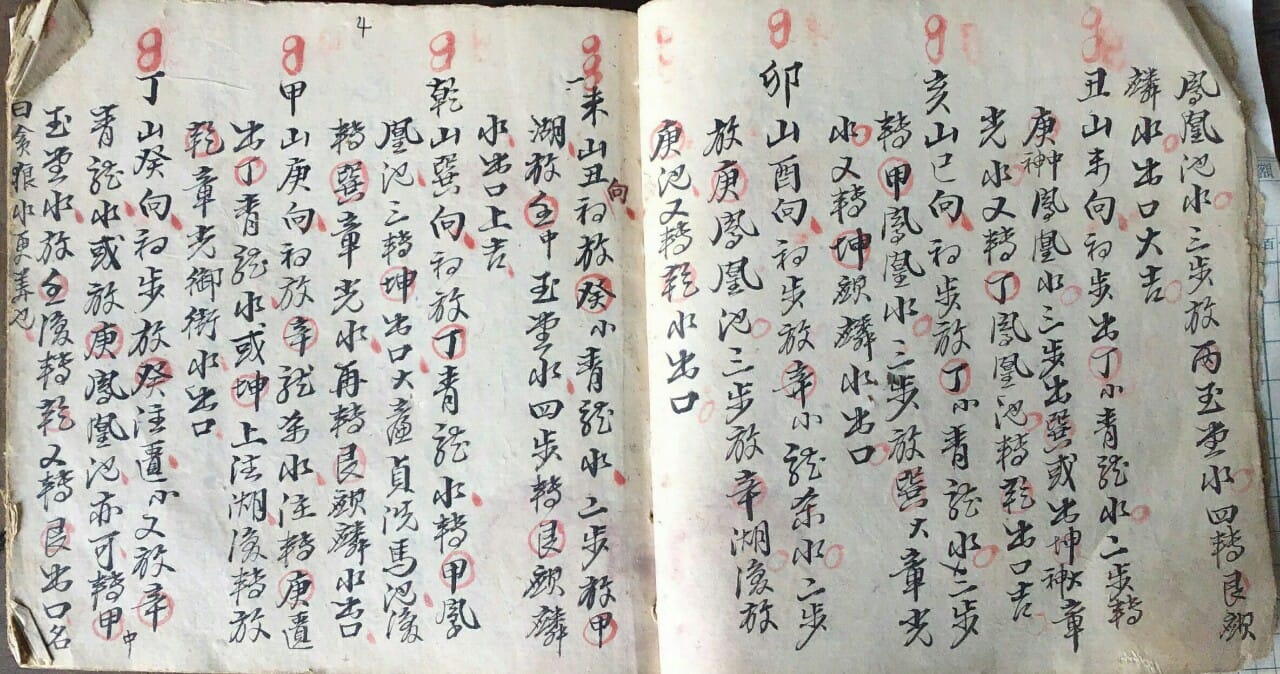 鳳凰池水三步放丙玉堂水四轉艮麒
麟水出口大吉
丑山未向初步出丁小青龍水二步轉
庚中神鳳凰水三步出巽或出坤大神章
光水又轉丁鳳凰池轉乾出口吉
亥山巳向初步放丁小青龍水二步
轉甲鳳凰水三步放巽大章光
水又轉坤麒麟水出口
卯山酉向初步放辛小龍榮水二步
放庚鳳凰池三步放辛湖後放
庚池又轉乾水出口
4
未山丑向初放癸小青龍水二步放甲
湖放壬中玉堂水四步轉艮麒麟
水出口上吉
乾山巽向初放丁青龍水轉甲鳳
凰池三轉坤出口大廉貞洗馬池後
轉巽章光水再轉艮麒麟水出口
甲山庚向初放辛龍榮水注轉庚遷
出丁青龍水或坤上注湖後轉放
乾章光御街水出口
丁山癸向初步放癸注遷小又放辛
青龍水或放庚鳳凰池亦可轉甲中
玉堂水放壬後轉乾又轉艮出口名
曰貪狼水更美也